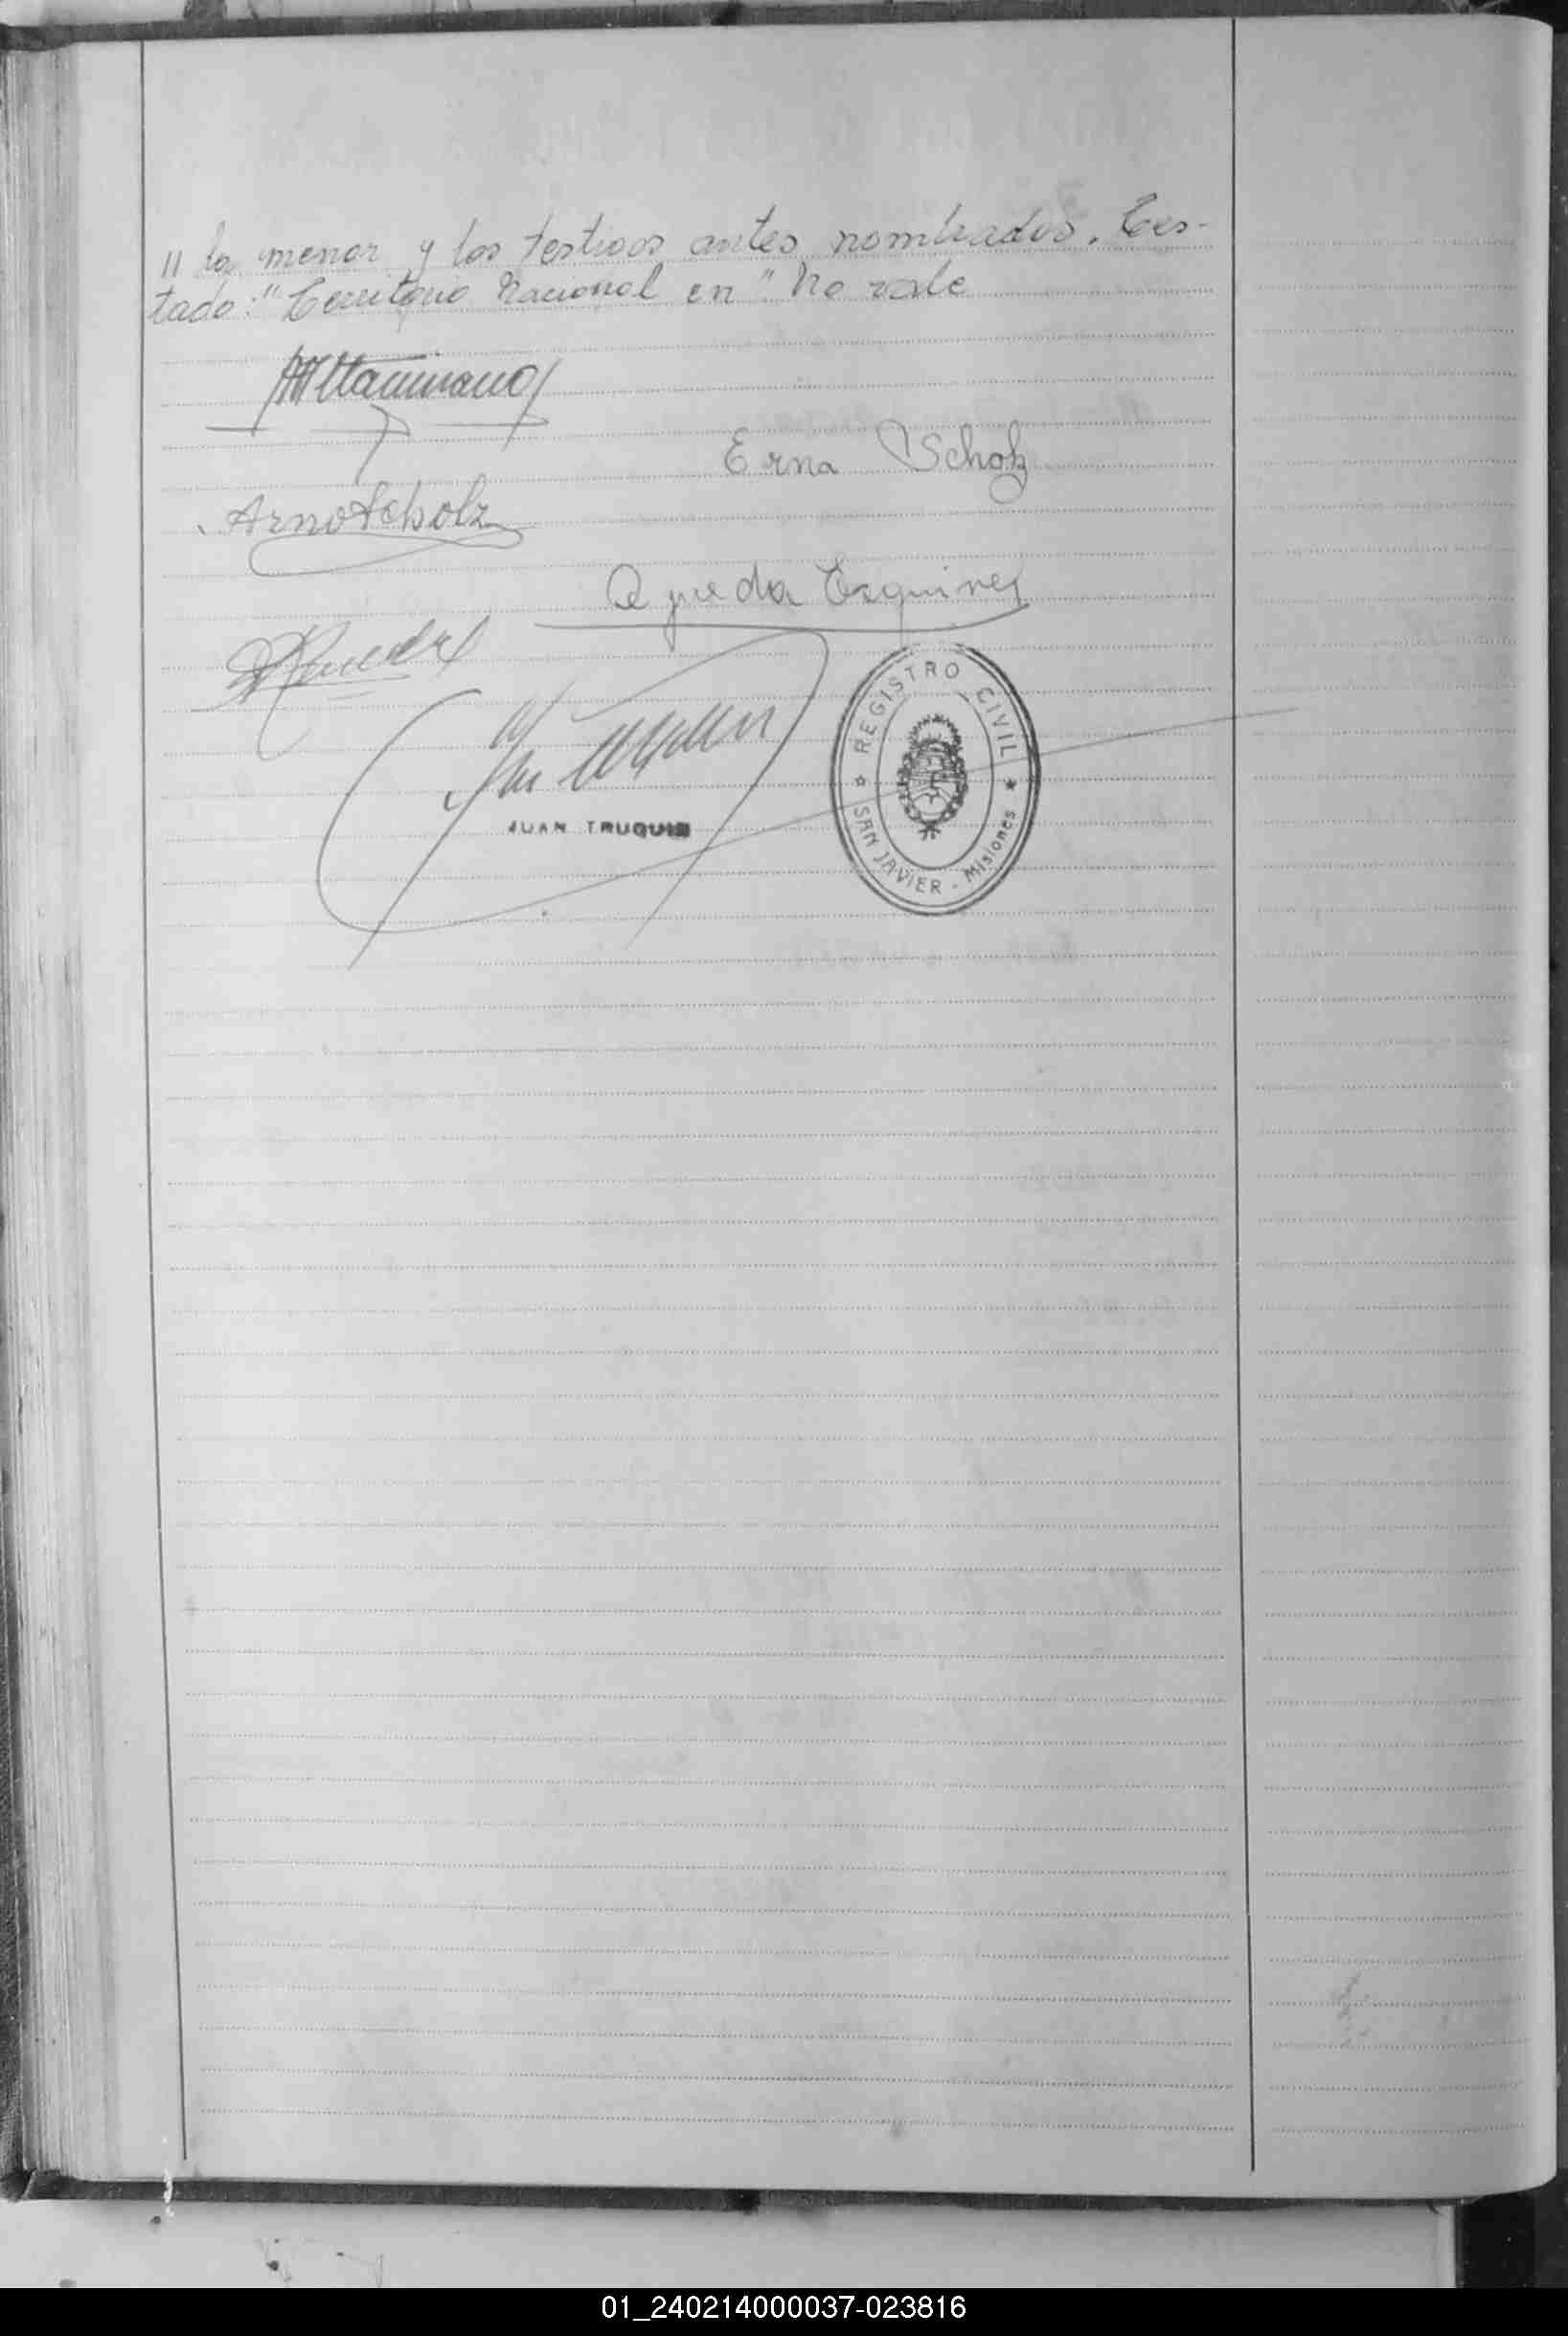 " la menor y los testigos antes nombrados. Tes-
tado: "Territorio Nacional en" No vale
Altamirano
Erna Scholz
Arno Scholz
Agueda Esquivel
JUAN TRUQUIE
REGISTRO CIVIL
SAN JAVIER - Misiones
01_240214000037-023816